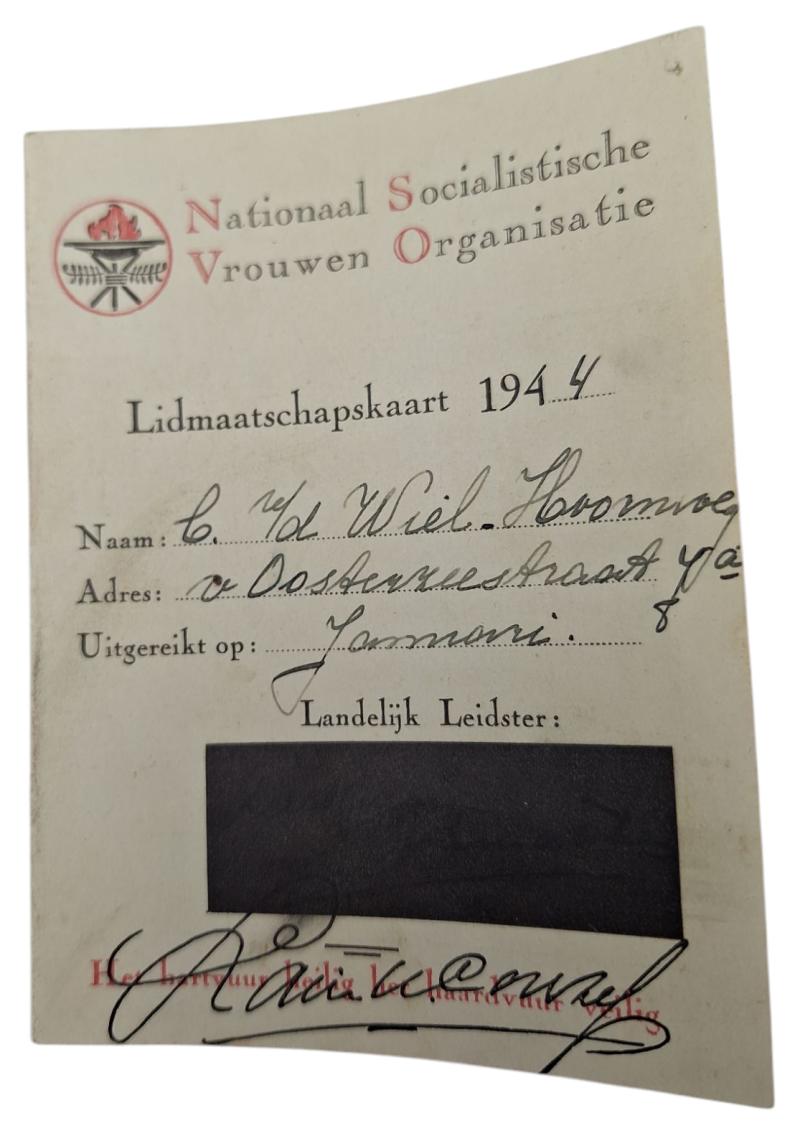 Nationaal Socialistische
Vrouwen Organisatie
Lidmaatschapskaart 1944
Naam: C. v/d Wiel-Hoornweg
Adres: v Oosterzeestraat 4a
8
Uitgereikt op: Januari.
Landelijk Leidster:
Het hartvuur heilig het haardvuur veilig